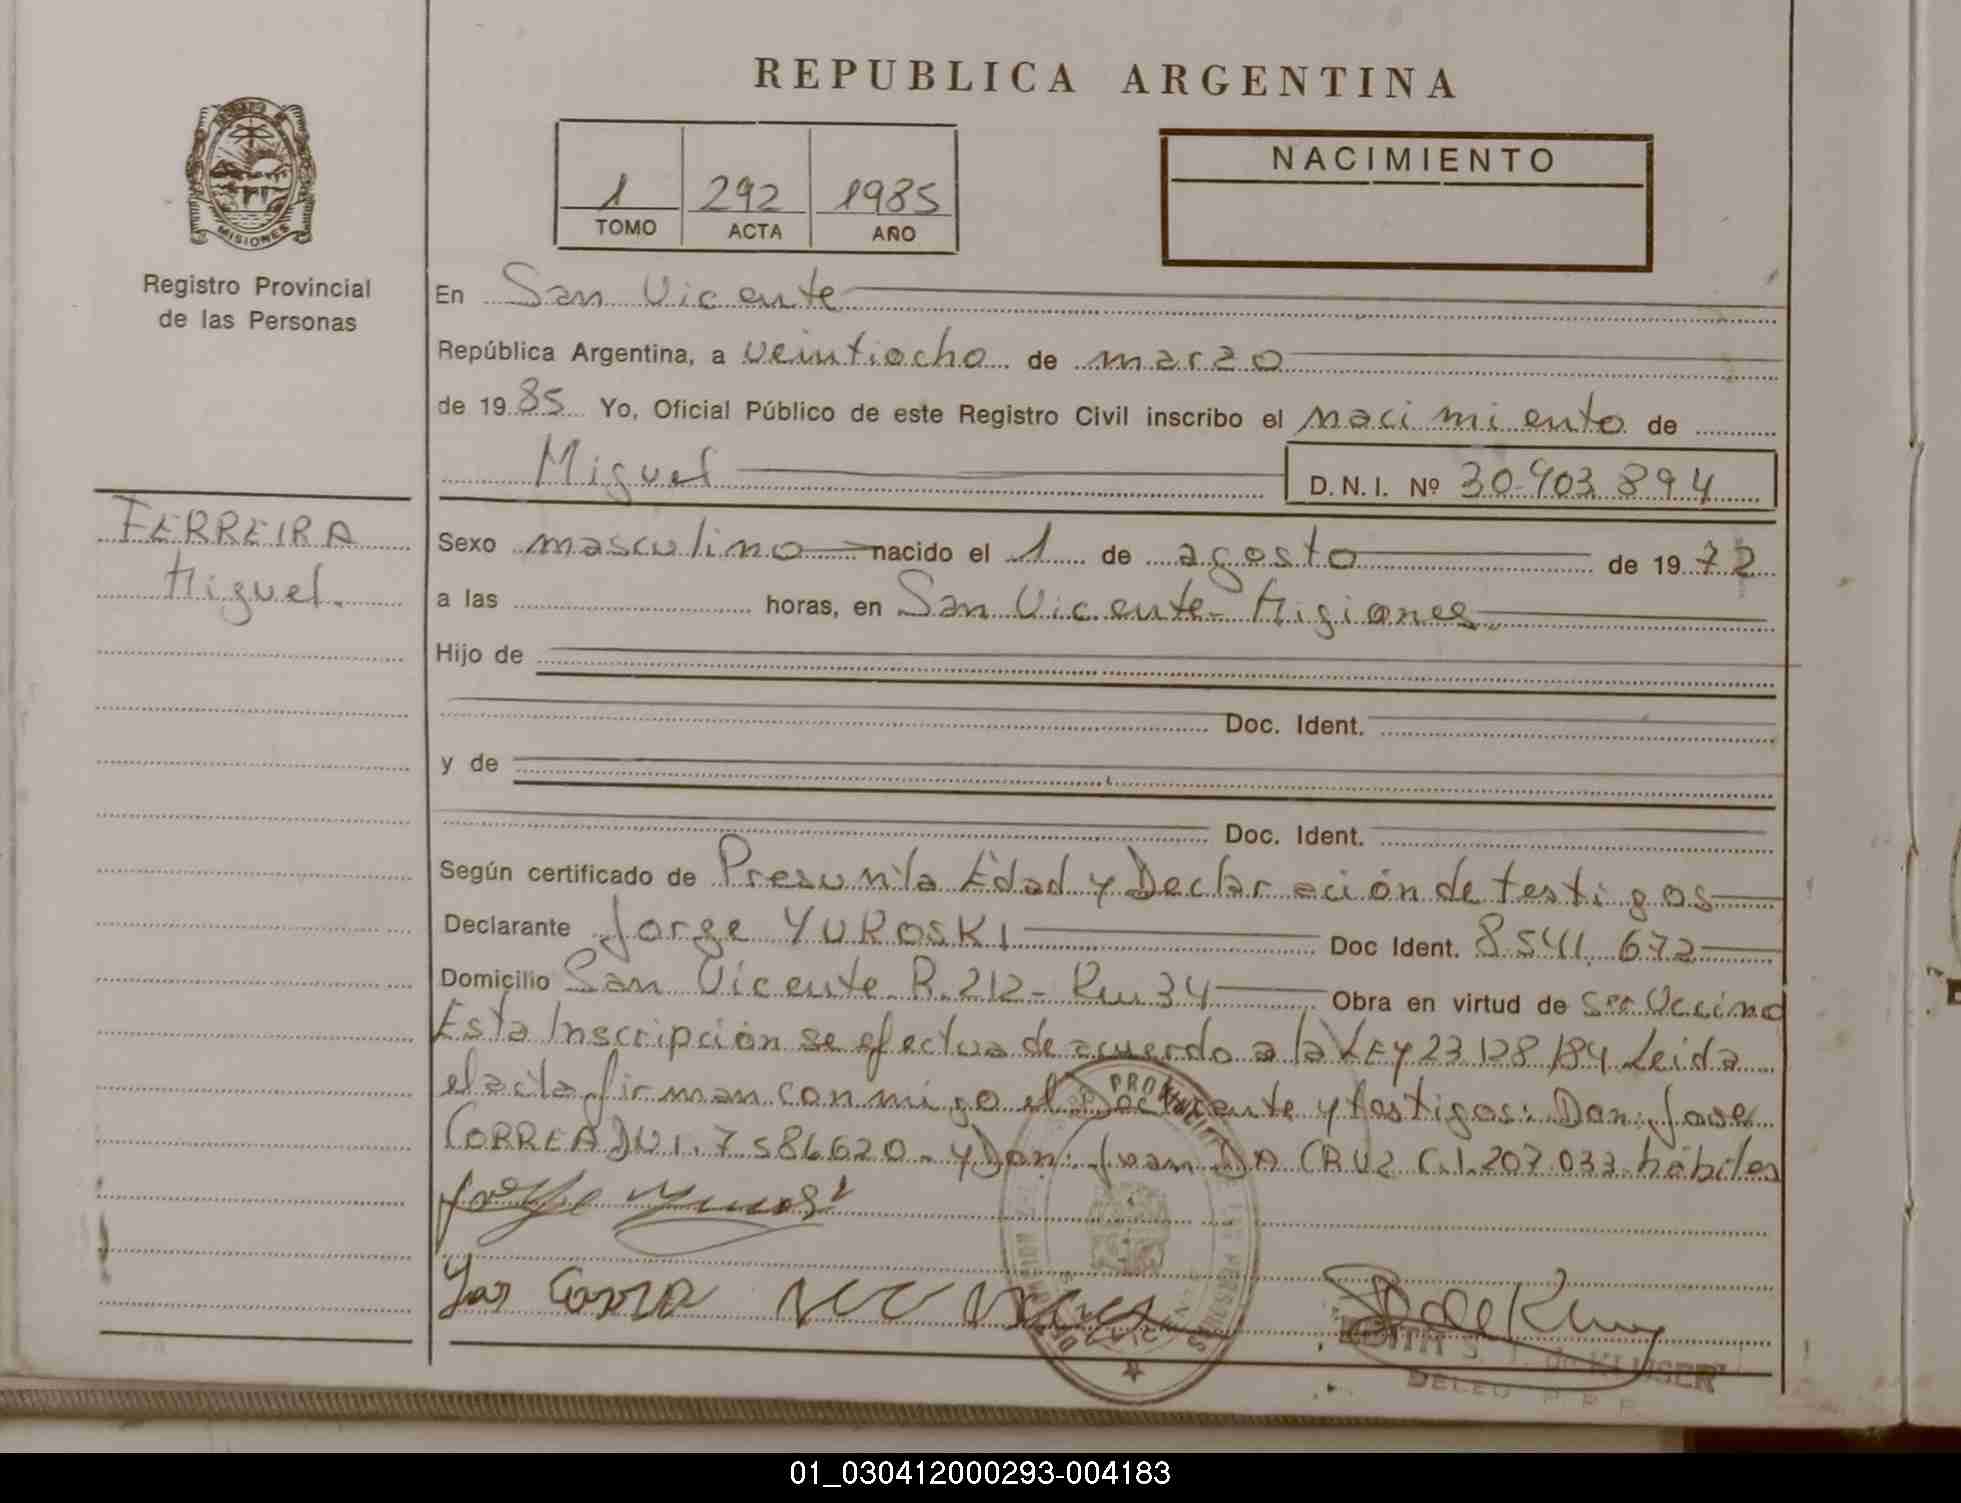 REPUBLICA ARGENTINA
MISIONES
Registro Provincial
de las Personas
1 292 1985
TOMO ACTA AÑO
NACIMIENTO
En San Vicente
República Argentina, a veintiocho de marzo
de 1985 Yo, Oficial Público de este Registro Civil inscribo el nacimiento de
Miguel D.N.I. Nº 30.903.894
FERREIRA
Miguel.
Sexo masculino nacido el 1 de agosto de 1972
a las horas, en San Vicente - Misiones.
Hijo de
Doc. Ident.
y de
Doc. Ident.
Según certificado de Presunta Edad y Declaración de testigos
Declarante Jorge YUROSKI Doc Ident. 8541.672
Domicilio San Vicente R.212- Km 34 Obra en virtud de Ser Vecino
Esta Inscripción se efectua de acuerdo a la LEY 23.128/84 Leida
el acta firman conmigo el Declarente y testigos: Don: Jose
CORREA DNI. 7586620 - y Don: Juan DA CRUZ C.I. 207.033 hábiles
de KLUSER
DELEG
01_030412000293-004183